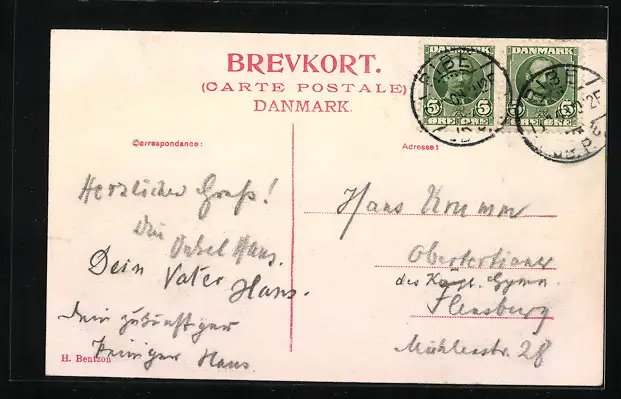 BREVKORT.
(CARTE POSTALE)
DANMARK.
DANMARK
5 5
ØRE ØRE
DANMARK
5 5
ØRE ØRE
RIBE
RIBE
Correspondance:
Adresse:
Herzlichen Gruß!
Dein
Onkel Hans.
Dein Vater
Hans.
Dein zukünftiger
Hans.
Hans Krumm
Obertertianer
des Kögl. Gymn.
Flensburg
Mühlenstr. 28
H. Bentzon